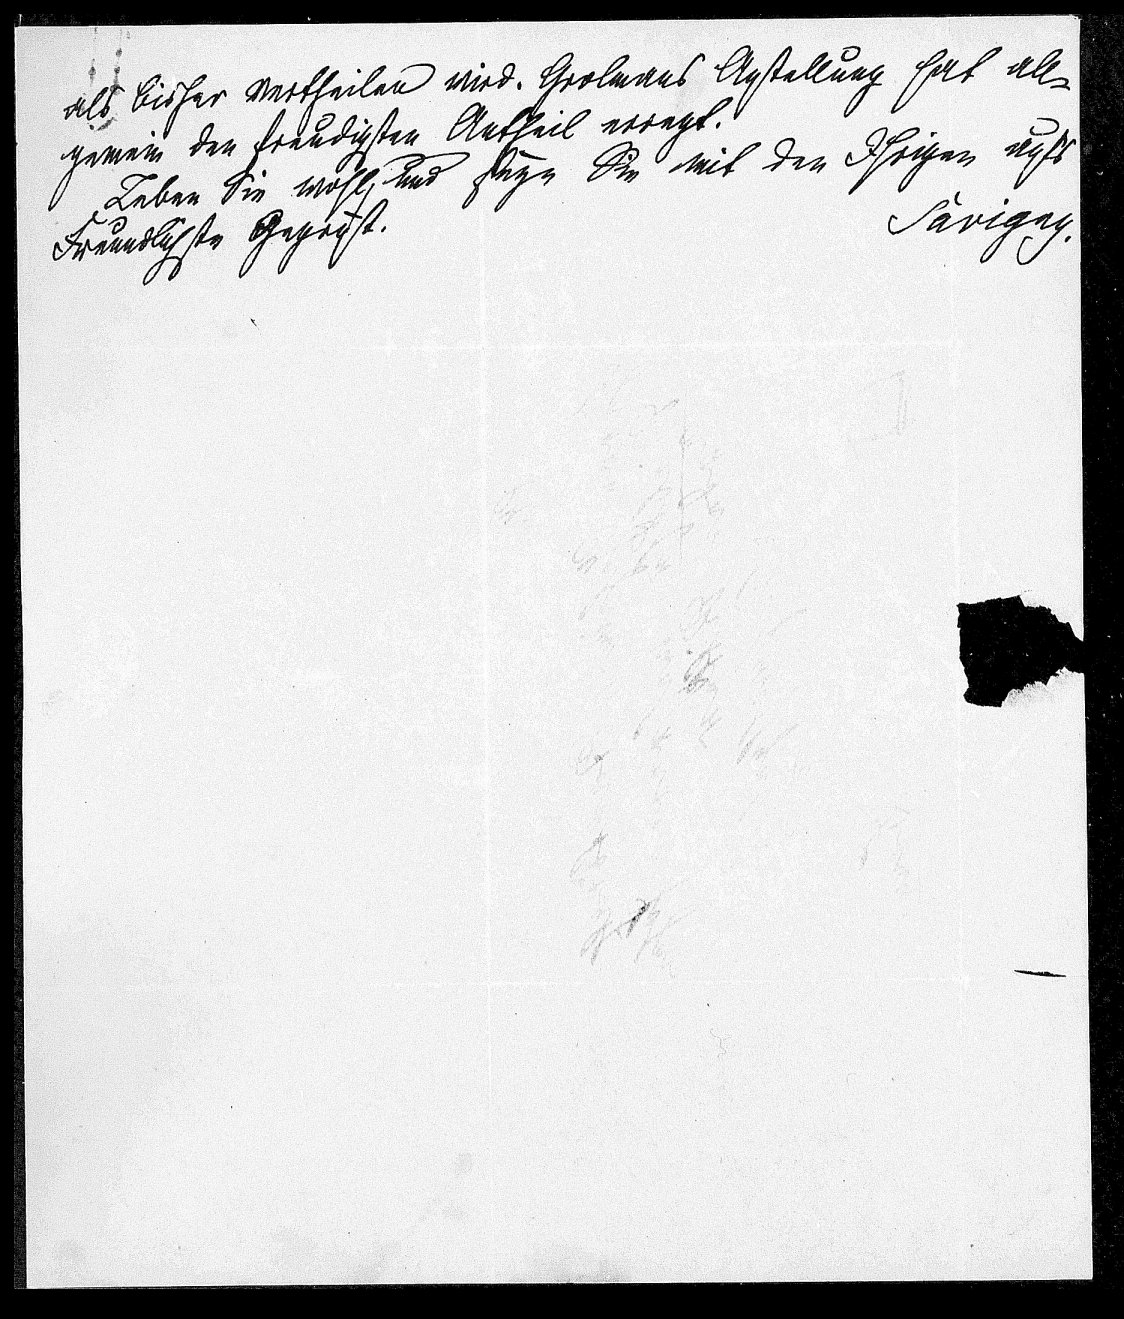 als bisher vertheilen wird. Grolmans Anstellung hat all-
gemein den freudigsten Antheil erregt.
Leben Sie wohl, und seyen Sie mit den Ihrigen aufs
Freundlichste gegrüßt. Savigny.